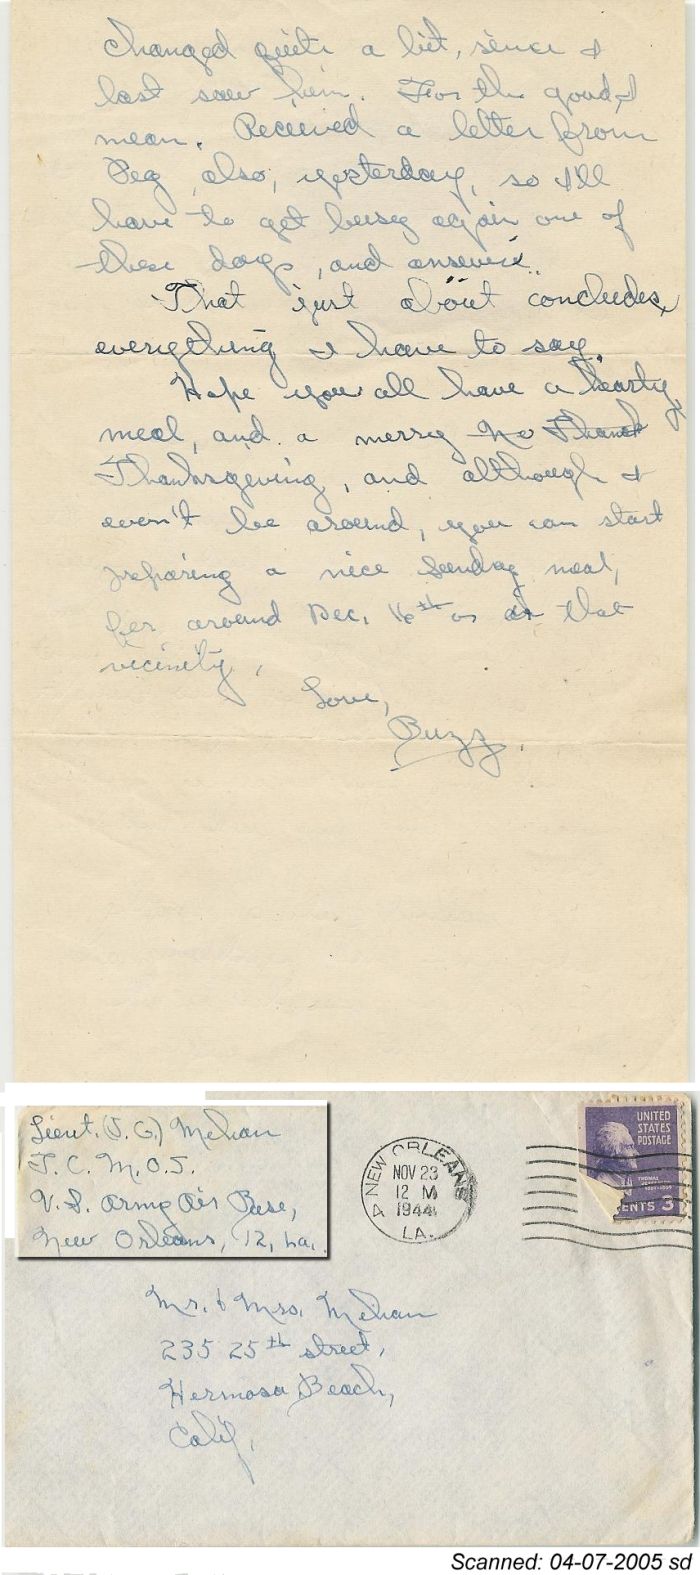 changed quite a bit, since I
last saw him. For the good, I
mean. Received a letter from
Peg also, yesterday, so I'll
have to get busy again one of
these days, and answer it.
That just about concludes,
everything I have to say.
Hope you all have a hearty
meal, and a merry
Thanksgiving, and although I
won't be around, you can start
preparing a nice Sunday meal,
for around Dec. 16th or in that
vicinity.
Love,
Buzz.
Lieut. (J.G.) Mehan
T.C.M.O.S.
U.S. Army Air Base,
New Orleans, 12, La.
NEW ORLEANS
NOV 23
12 M
1944
LA.
UNITED
STATES
POSTAGE
THOMAS
CENTS 3
Mr. & Mrs. Mehan
235 25th street,
Hermosa Beach,
Calif.
Scanned: 04-07-2005 sd